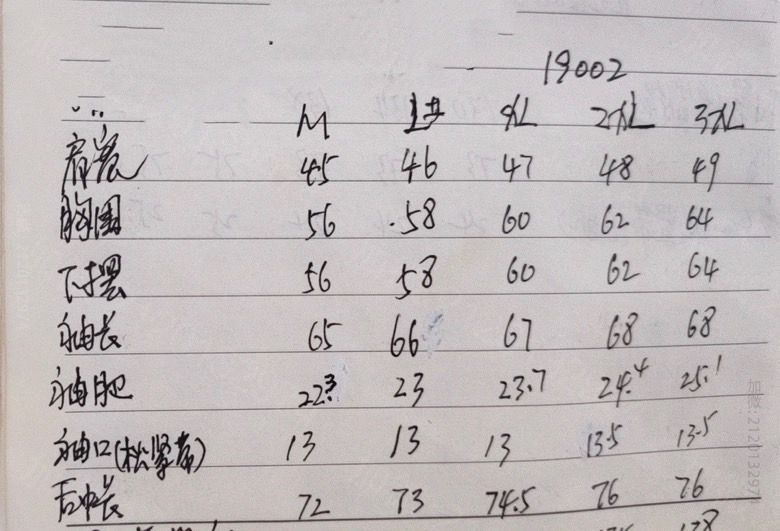 19002
M L# XL 2XL 3XL
肩宽 45 46 47 48 49
胸围 56 58 60 62 64
下摆 56 58 60 62 64
袖长 65 66 67 68 68
袖肥 22.3 23 23.7 24.4 25.1
袖口(松紧带) 13 13 13 13.5 13.5
后中长 72 73 74.5 76 76